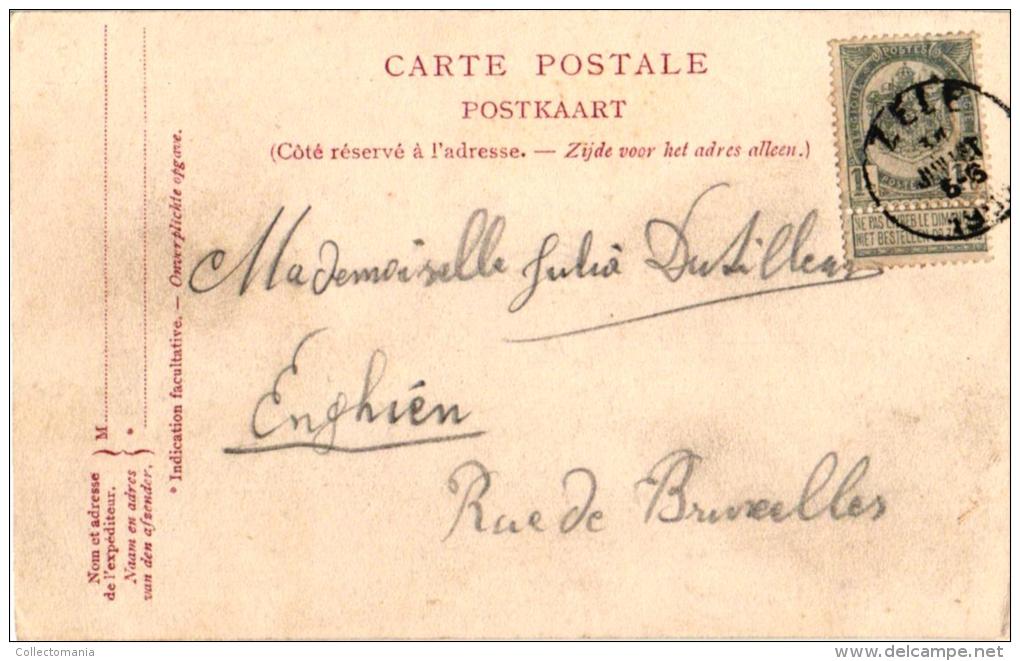 CARTE POSTALE
POSTKAART
(Côté réservé à l'adresse. — Zijde voor het adres alleen.)
POSTES
ZELE
5-6
NE PAS LIVRER LE DIMANCHE
NIET BESTELLEN OP ZONDAG
Mademoiselle Julia Dutilleux
Enghién
Rue de Bruxelles
* Indication facultative. — Onverplichte opgave.
M
*
Nom et adresse
de l'expéditeur.
Naam en adres
van den afzender.
Collectomania
www.delcampe.net